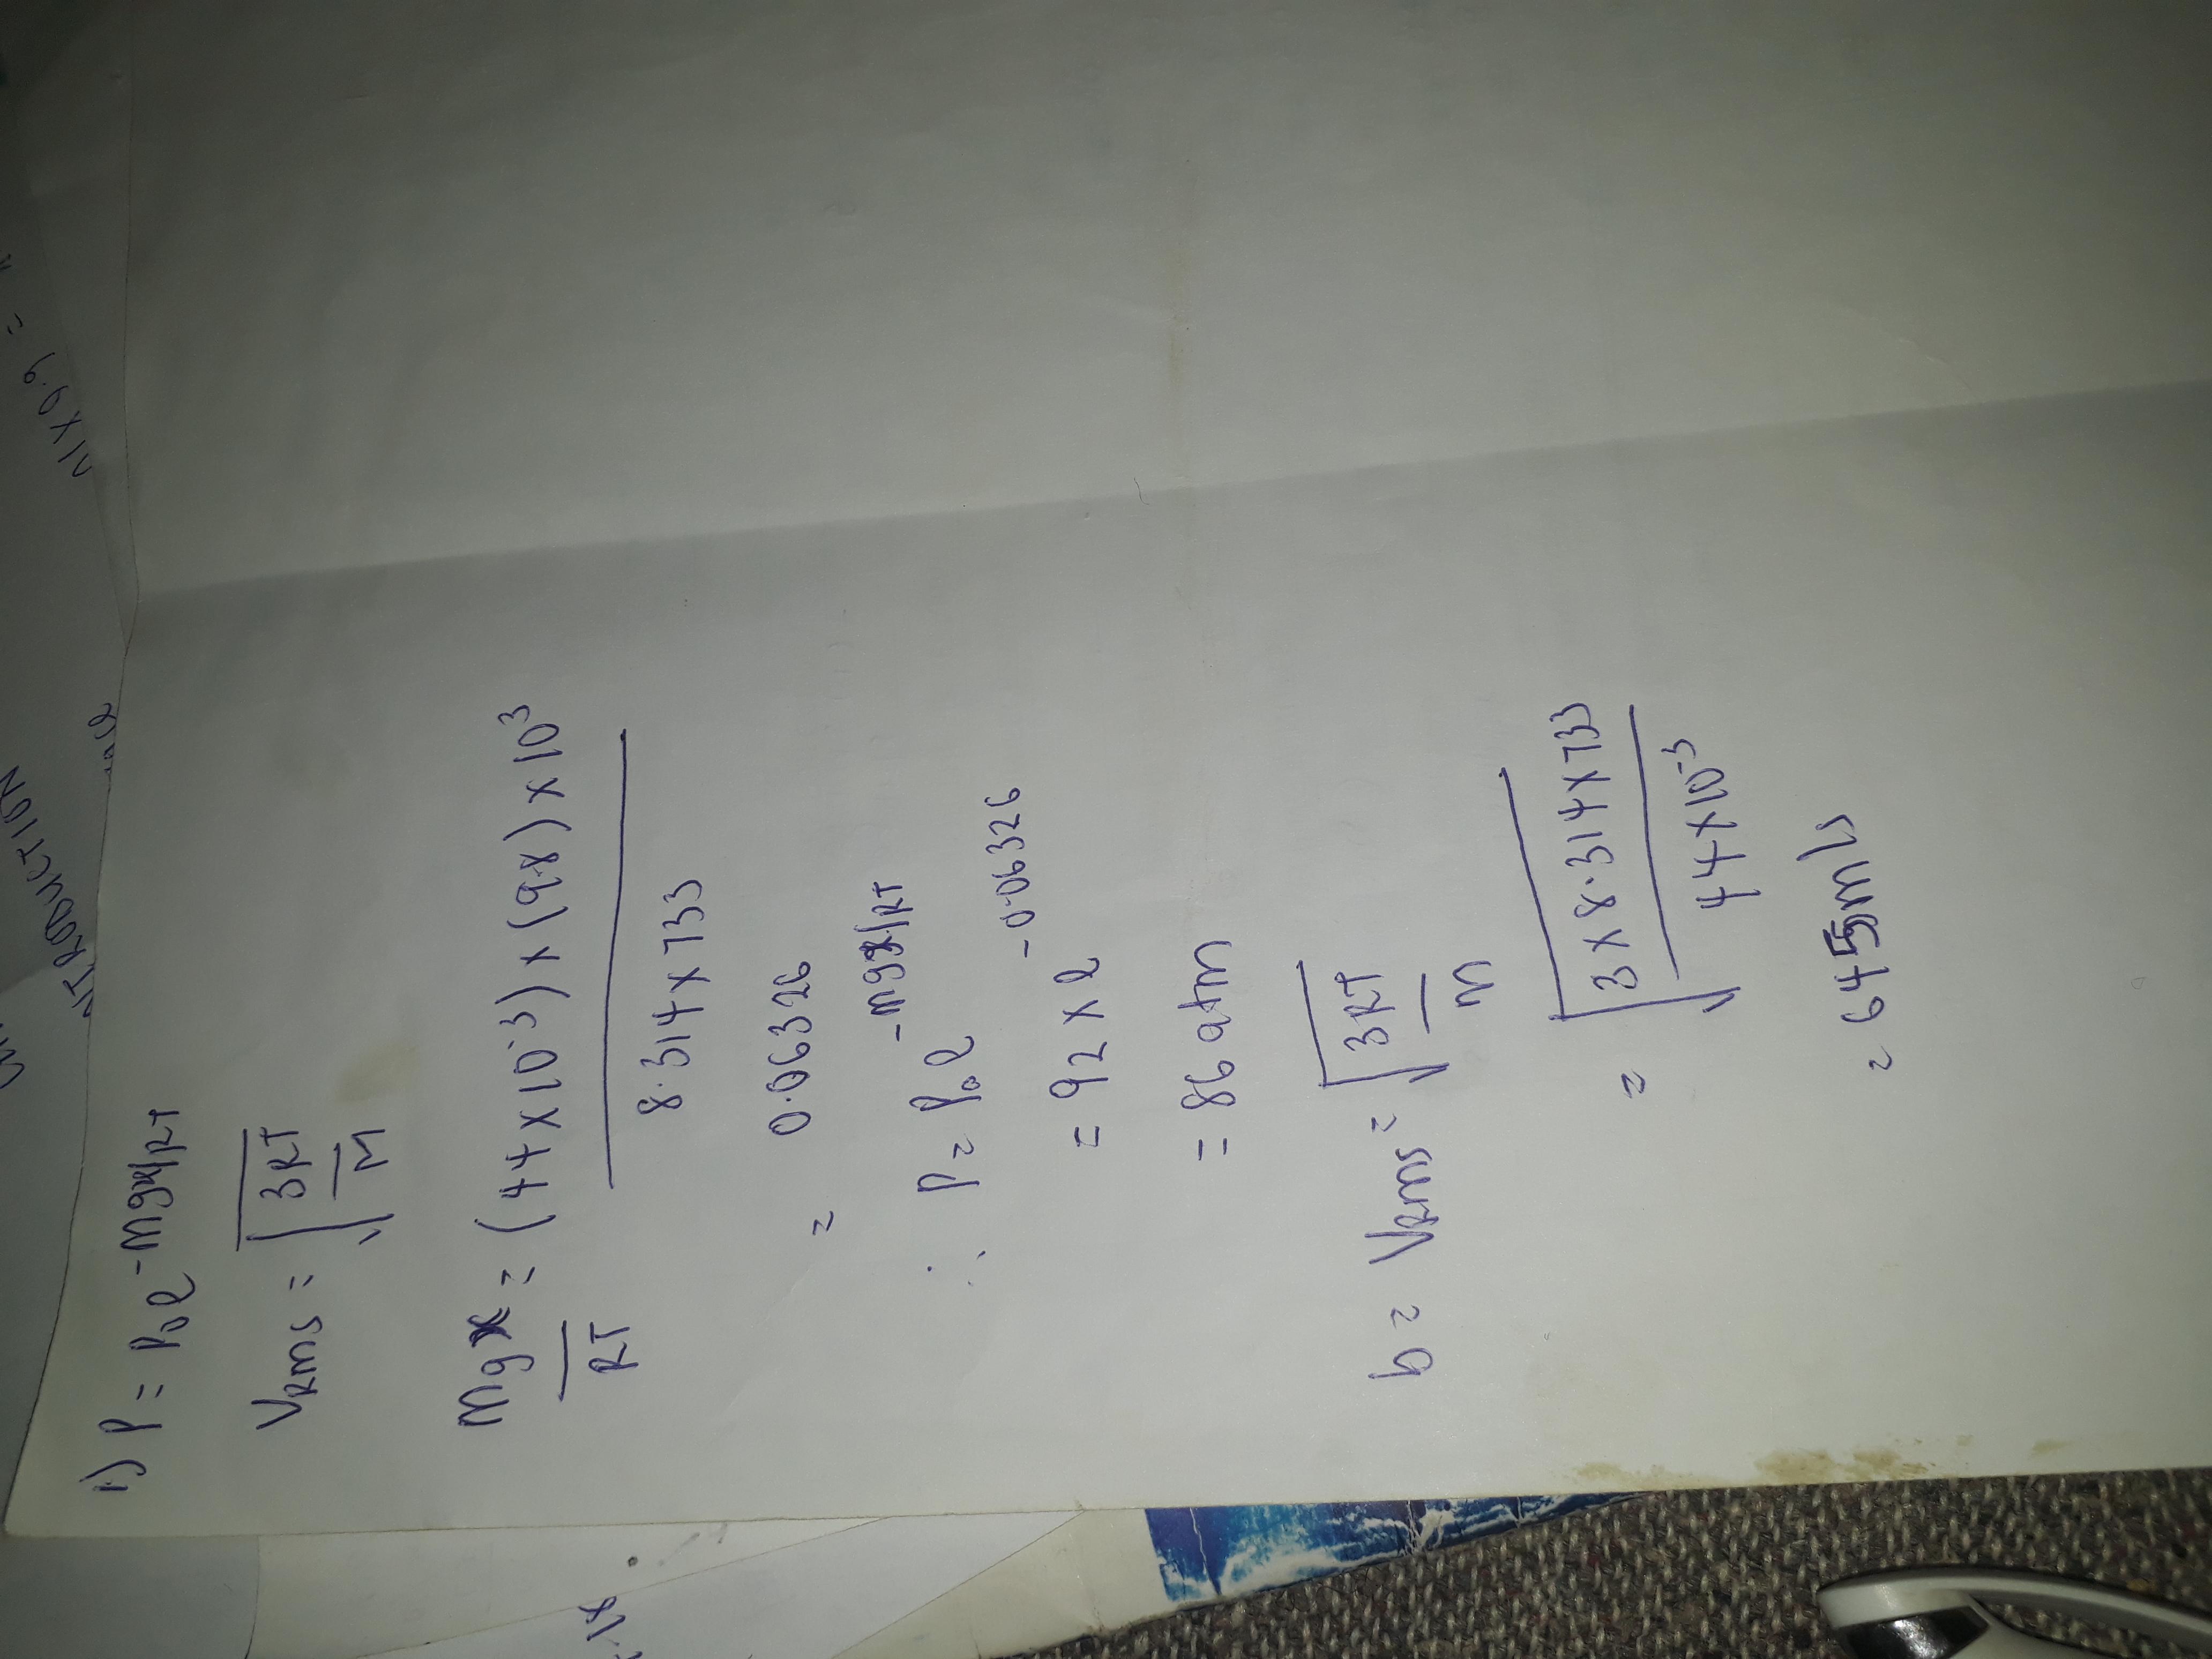 1.) P = P₀e^-Mgx/RT
Vrms = √3RT/M
Mgx/RT = (44 x 10^-3) x (9.8) x 10^3 / 8.314 x 733
= 0.06326
∴ P = P₀e^-mgx/RT
= 92 x e^-0.06326
= 86 atm
b = Vrms = √3RT/m
= √3 x 8.314 x 733 / 44 x 10^-3
= 645 m/s
NTRODUCTION